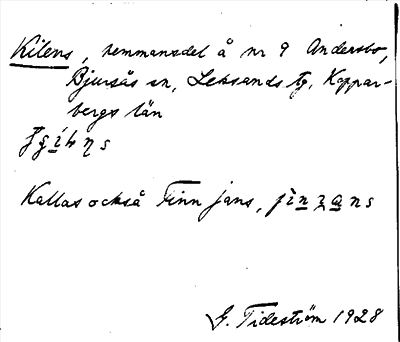 Kilens, hemmansdel å nr 9 Andersbo,
Bjursås sn, Leksands tg, Koppar-
bergs län
Kallas också Finn jans,
G. Tideström 1928